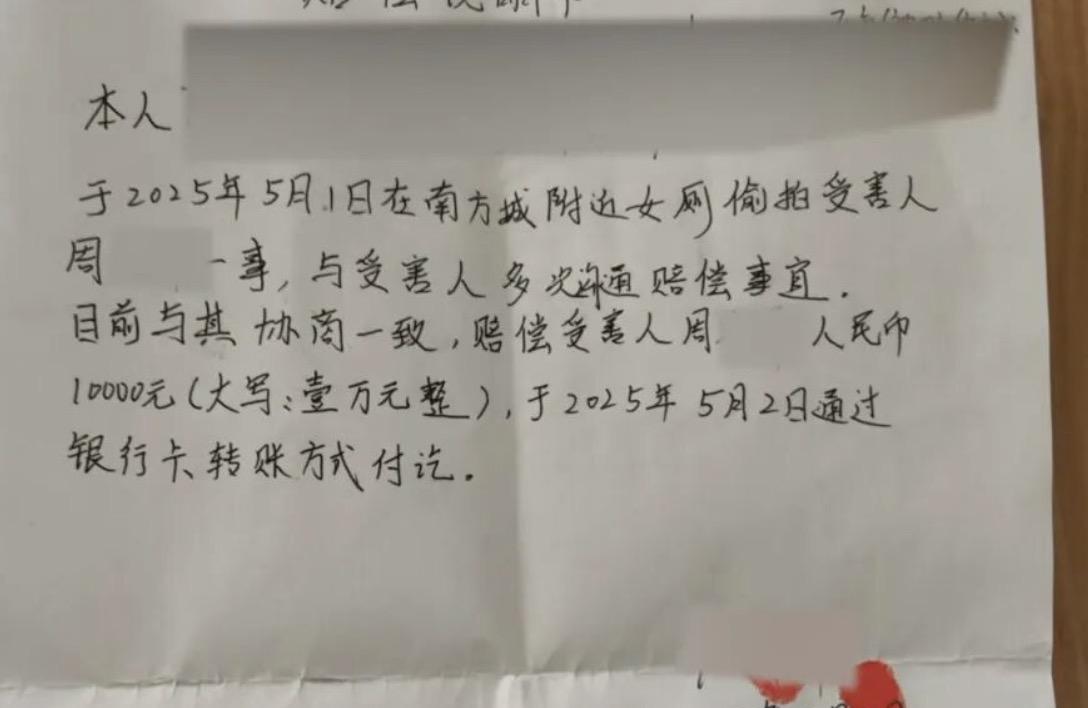 本人
于2025年5月1日在南方城附近女厕偷拍受害人
周 一事，与受害人多次沟通赔偿事宜.
目前与其协商一致，赔偿受害人周 人民币
10000元(大写:壹万元整)，于2025年5月2日通过
银行卡转账方式付讫.